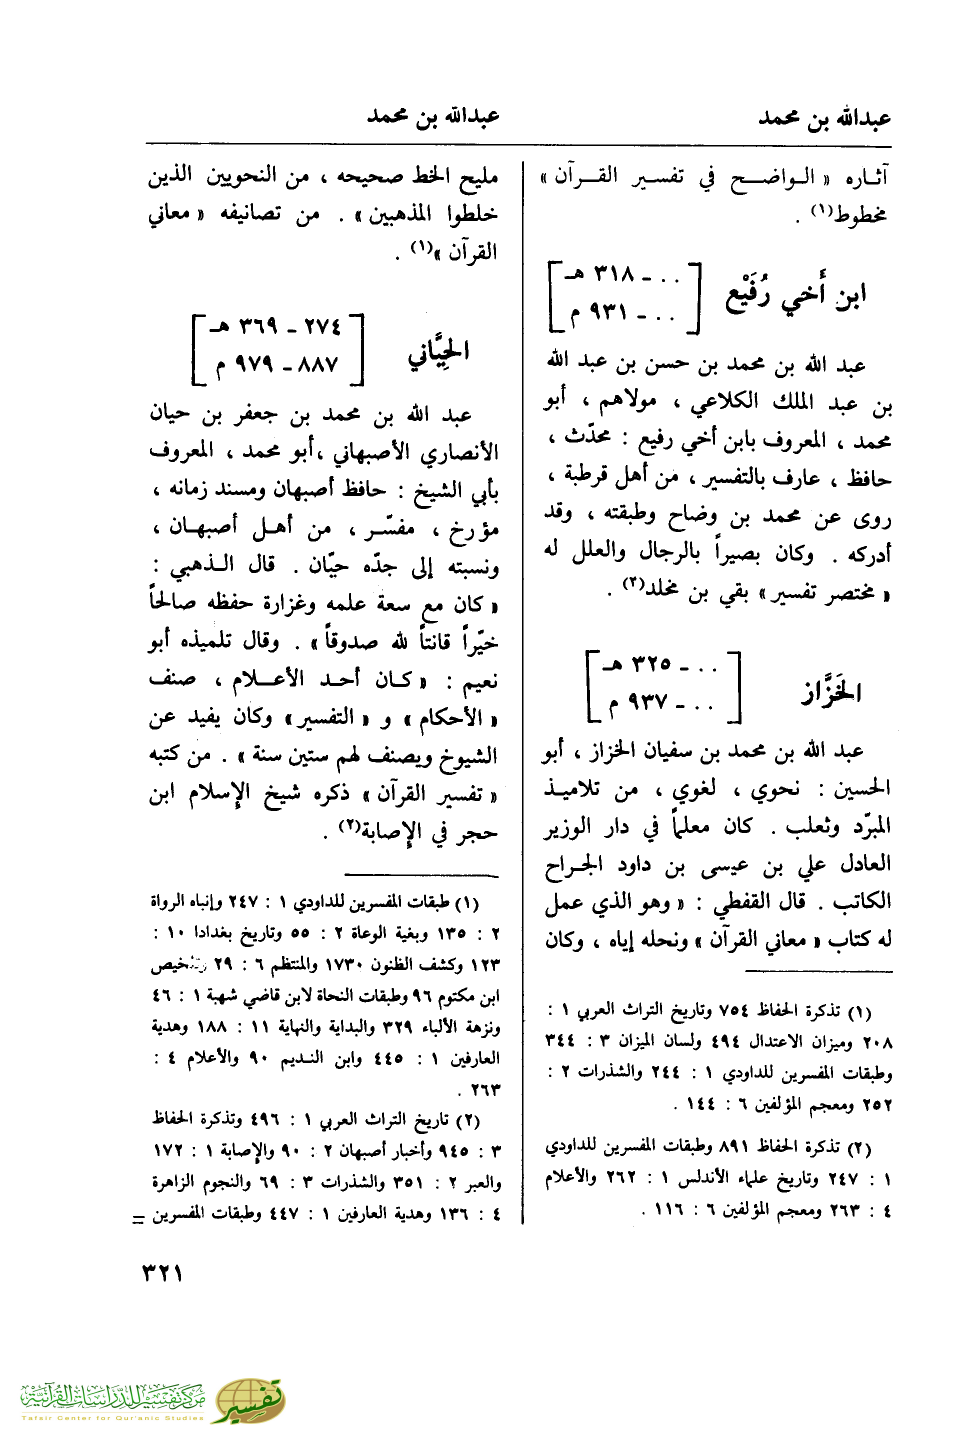 عبدالله بن محمد
عبدالله بن محمد
آثاره « الواضح في تفسير القرآن »
مخطوط(١) .
ابن أَخي رُفَيْع
[ . . ـ ٣١٨ هـ
. . ـ ٩٣١ م ]
عبد الله بن محمد بن حسن بن عبد الله
بن عبد الملك الكلاعي ، مولاهم ، أبو
محمد ، المعروف بابن أخي رفيع : محدّث ،
حافظ ، عارف بالتفسير ، من أهل قرطبة ،
روى عن محمد بن وضاح وطبقته ، وقد
أدركه . وكان بصيراً بالرجال والعلل له
« مختصر تفسير » بقي بن مخلد(٢) .
الخَزَّاز
[ . . ـ ٣٢٥ هـ
. . ـ ٩٣٧ م ]
عبد الله بن محمد بن سفيان الخزاز ، أبو
الحسين : نحوي ، لغوي ، من تلاميذ
المبرّد وثعلب . كان معلماً في دار الوزير
العادل علي بن عيسى بن داود الجراح
الكاتب . قال القفطي : « وهو الذي عمل
له كتاب « معاني القرآن » ونحله إياه ، وكان
(١) تذكرة الحفاظ ٧٥٤ وتاريخ التراث العربي ١ :
٢٠٨ وميزان الاعتدال ٤٩٤ ولسان الميزان ٣ : ٣٤٤
وطبقات المفسرين للداودي ١ : ٢٤٤ والشذرات ٢ :
٢٥٢ ومعجم المؤلفين ٦ : ١٤٤ .
(٢) تذكرة الحفاظ ٨٩١ وطبقات المفسرين للداودي
١ : ٢٤٧ وتاريخ علماء الأندلس ١ : ٢٦٢ والأعلام
٤ : ٢٦٣ ومعجم المؤلفين ٦ : ١١٦ .
مليح الخط صحيحه ، من النحويين الذين
خلطوا المذهبين » . من تصانيفه « معاني
القرآن »(١) .
الحِيَّاني
[ ٢٧٤ ـ ٣٦٩ هـ
٨٨٧ ـ ٩٧٩ م ]
عبد الله بن محمد بن جعفر بن حيان
الأنصاري الأصبهاني ، أبو محمد ، المعروف
بأبي الشيخ : حافظ أصبهان ومسند زمانه ،
مؤرخ ، مفسّر ، من أهل أصبهان ،
ونسبته إلى جدّه حيّان . قال الذهبي :
« كان مع سعة علمه وغزارة حفظه صالحاً
خيّراً قانتاً لله صدوقاً » . وقال تلميذه أبو
نعيم : « كان أحد الأعلام ، صنف
« الأحكام » و « التفسير » وكان يفيد عن
الشيوخ ويصنف لهم ستين سنة » . من كتبه
« تفسير القرآن » ذكره شيخ الإسلام ابن
حجر في الإصابة(٢) .
(١) طبقات المفسرين للداودي ١ : ٢٤٧ وإنباه الرواة
٢ : ١٣٥ وبغية الوعاة ٢ : ٥٥ وتاريخ بغدادا ١٠ :
١٢٣ وكشف الظنون ١٧٣٠ والمنتظم ٦ : ٢٩ وتلخيص
ابن مكتوم ٩٦ وطبقات النحاة لابن قاضي شهبة ١ : ٤٦
ونزهة الألباء ٣٢٩ والبداية والنهاية ١١ : ١٨٨ وهدية
العارفين ١ : ٤٤٥ وابن النديم ٩٠ والأعلام ٤ :
٢٦٣ .
(٢) تاريخ التراث العربي ١ : ٤٩٦ وتذكرة الحفاظ
٣ : ٩٤٥ وأخبار أصبهان ٢ : ٩٠ والإصابة ١ : ١٧٢
والعبر ٢ : ٣٥١ والشذرات ٣ : ٦٩ والنجوم الزاهرة
٤ : ١٣٦ وهدية العارفين ١ : ٤٤٧ وطبقات المفسرين =
٣٢١
مركز تفسير للدراسات القرآنية
Tafsir Center for Qur'anic Studies
تفسير